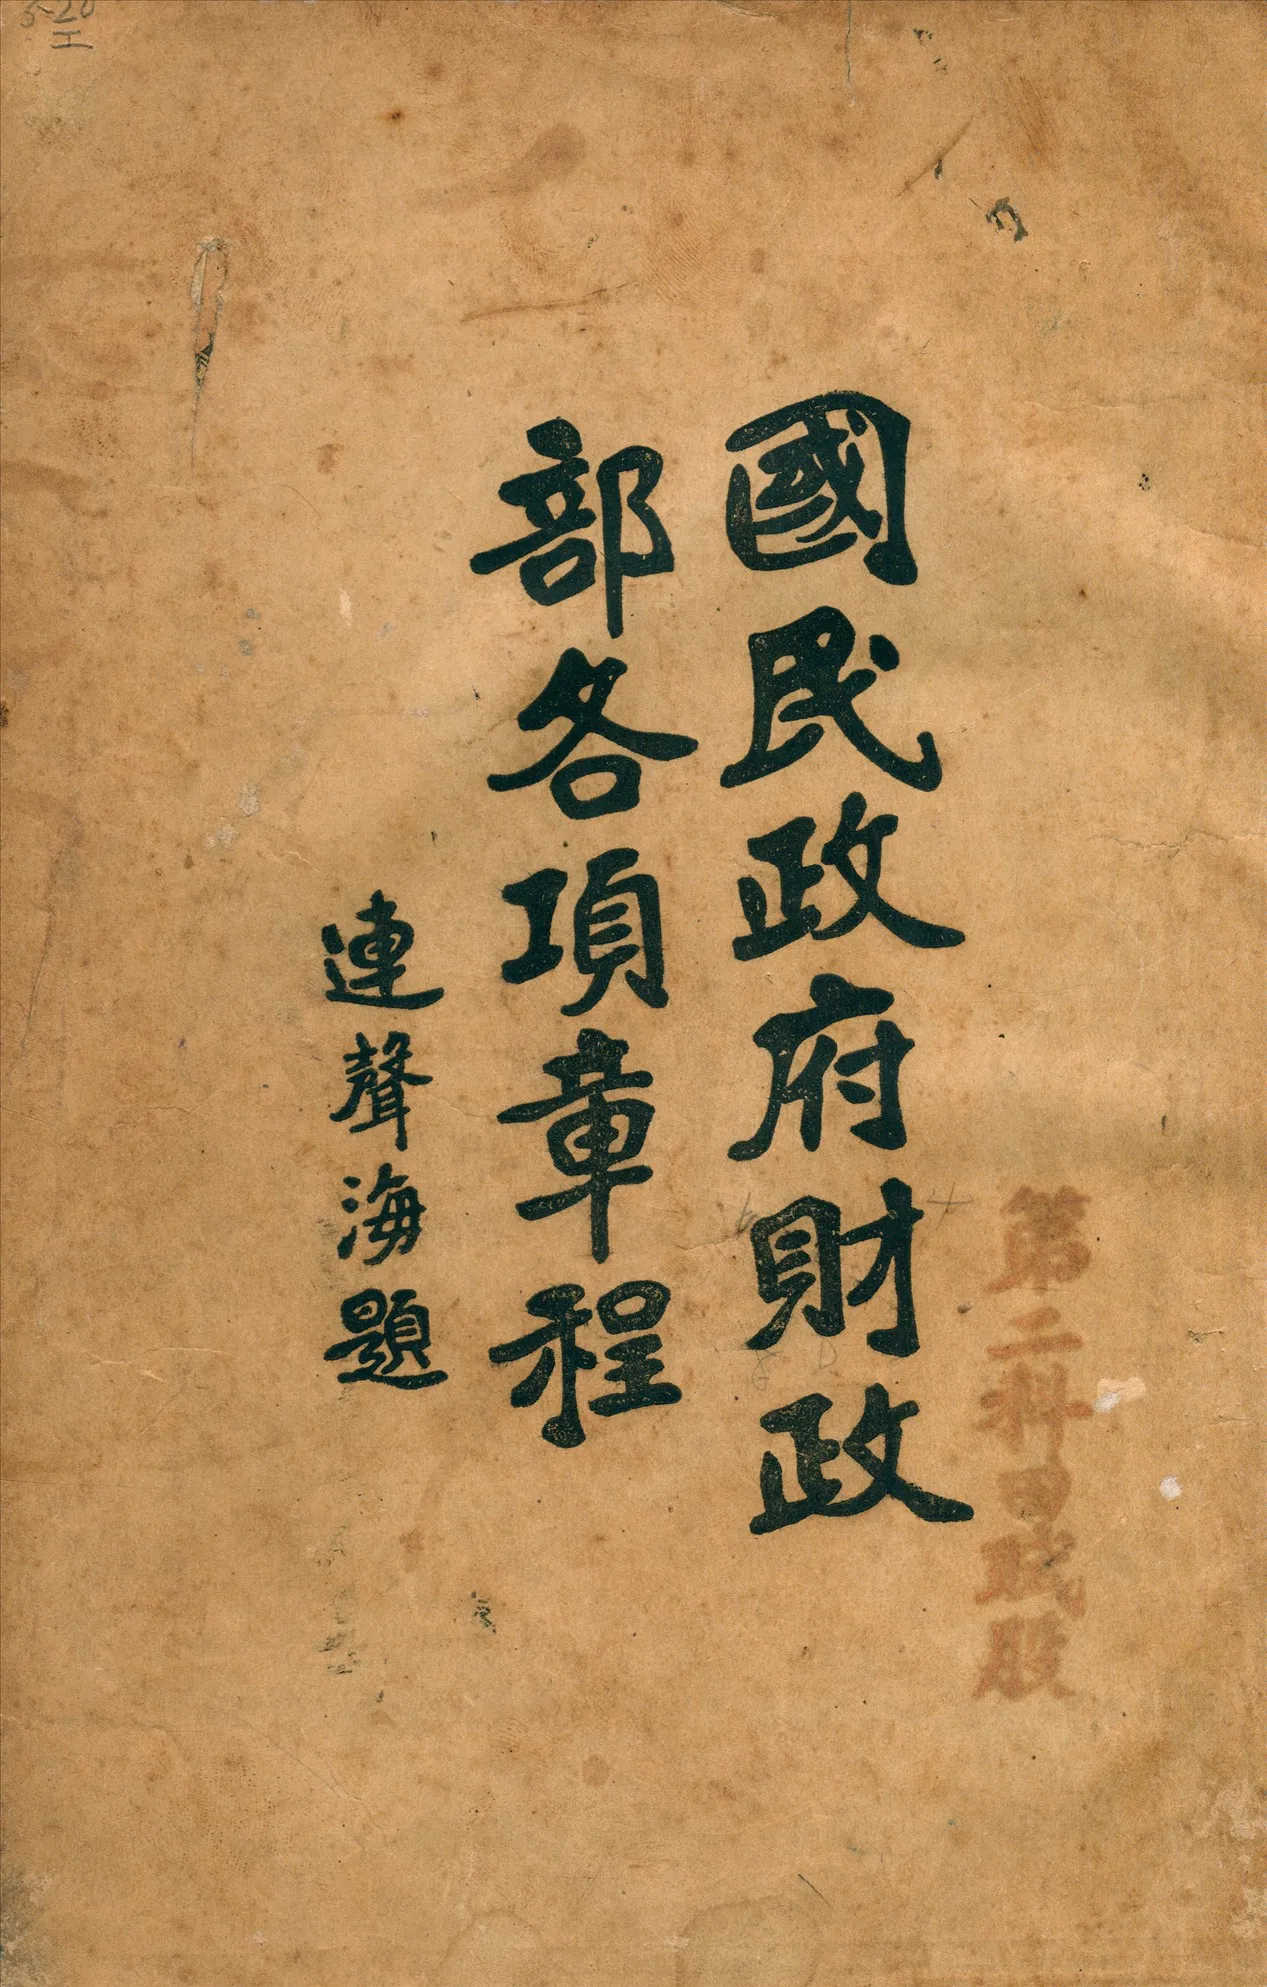 國民政府財政
部各項章程
連聲海題
第二科田賦股
5-20
工